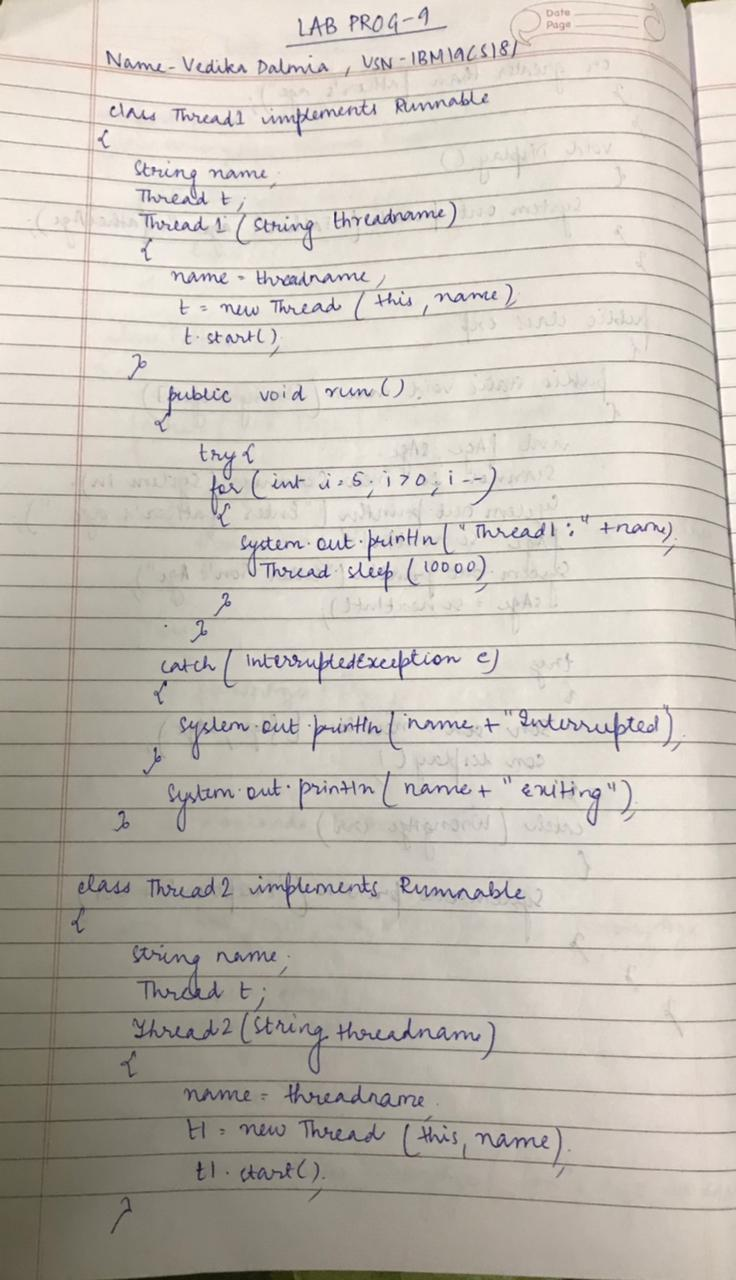 LAB PROG-9
Date
Page
Name - Vedika Dalmia, USN - 1BM19CS181
class Thread1 implements Runnable
{
String name;
Thread t;
Thread1 (String threadname)
{
name = threadname;
t = new Thread (this, name);
t.start();
}
public void run()
{
try{
for (int i=5; i>0; i--)
{
System.out.println("Thread1:" +name);
Thread.sleep (10000);
}
}
catch (InterruptedException e)
{
System.out.println (name + "Interrupted");
}
System.out.println (name + "Exiting");
}
class Thread2 implements Runnable
{
String name;
Thread t;
Thread2 (String threadname)
{
name = threadname;
t1 = new Thread (this, name);
t1.start();
}